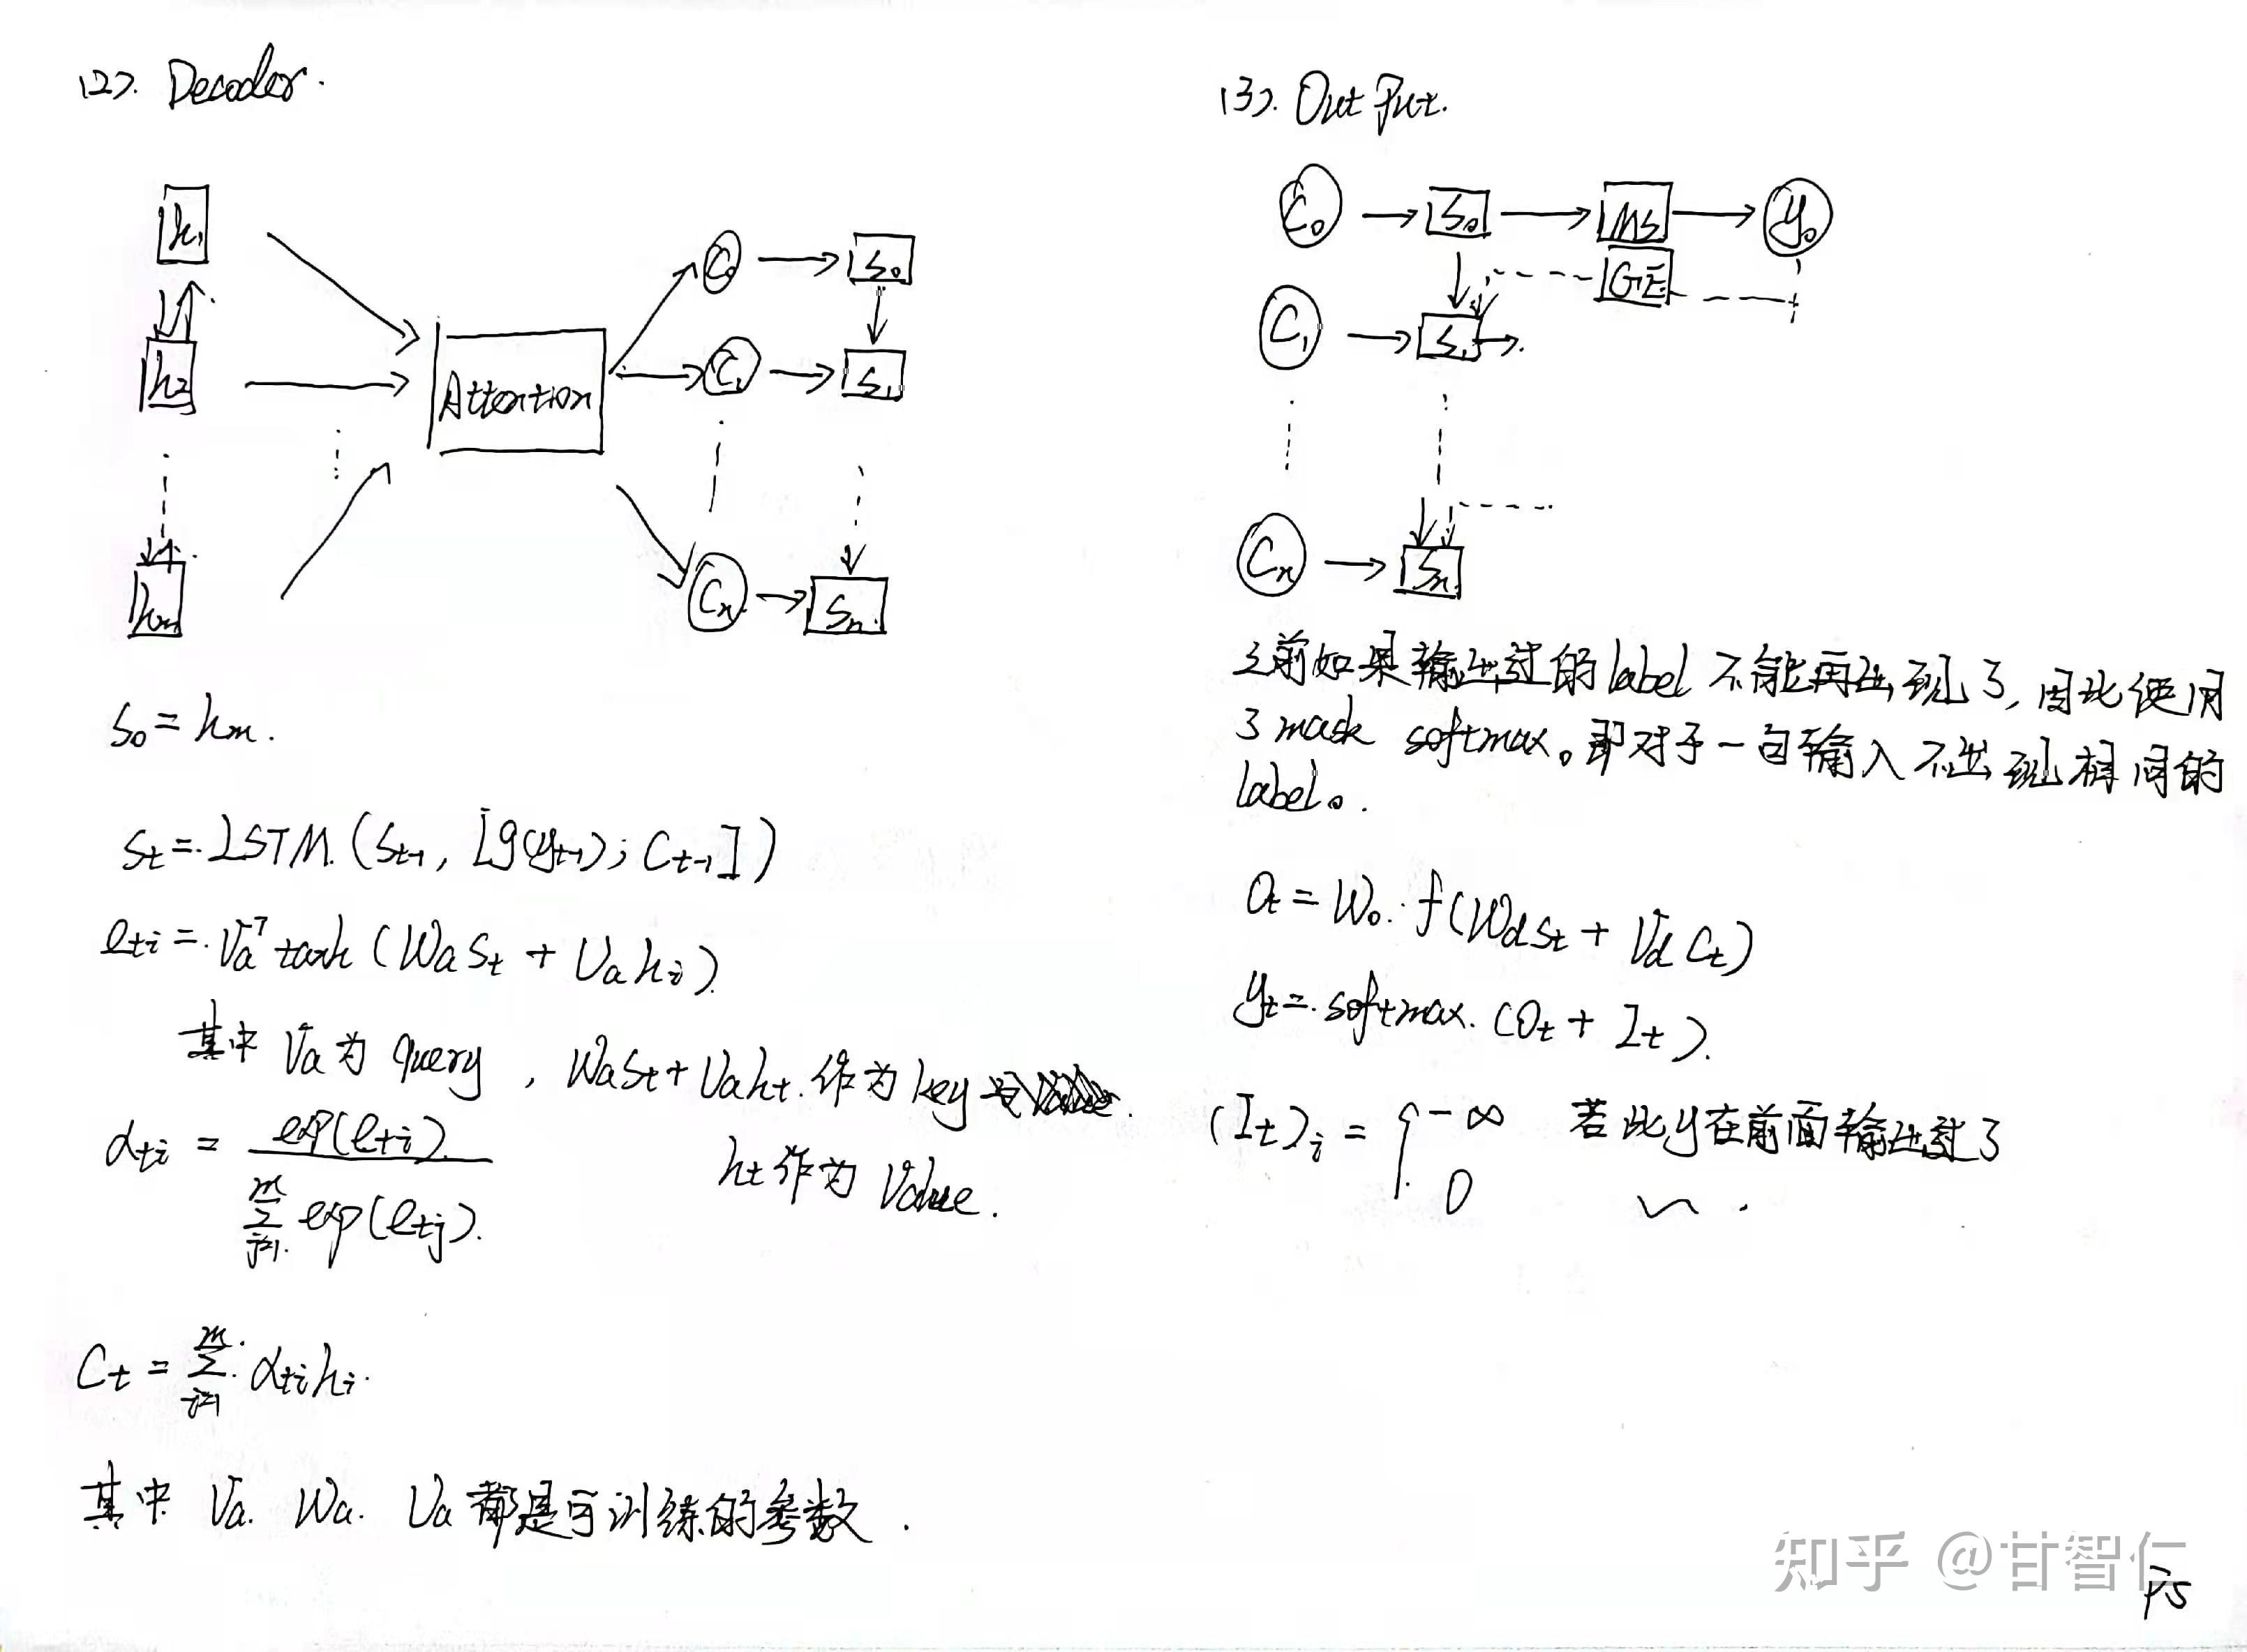 (2). Decoder.
h₁
h₂
hₘ
Attention
C₀
C₁
Cₙ
S₀
S₁
Sₙ
S₀ = hₘ.
Sₜ = LSTM (Sₜ₋₁, [g(yₜ₋₁); Cₜ₋₁])
eₜᵢ = Vₐᵀ tanh (WₐSₜ + Uₐhᵢ)
其中 Vₐ 为 query, WₐSₜ + Uₐhₜ 作为 key
hₜ 作为 Value.
αₜᵢ = exp(eₜᵢ) / Σⱼ₌₁ᵐ exp(eₜⱼ).
Cₜ = Σᵢ₌₁ᵐ αₜᵢhᵢ.
其中 Vₐ. Wₐ. Uₐ 都是可训练的参数.
(3). Output.
C₀ S₀ MS y₀
GE
C₁ S₁
Cₙ Sₙ
之前如果输出过的label不能再出现了,因此使用
了 mask softmax。即对于一句输入不出现相同的
label。
Oₜ = W₀ · f(W_d Sₜ + V_d Cₜ)
yₜ = softmax (Oₜ + Iₜ).
(Iₜ)ᵢ = { -∞ 若此y在前面输出过了
0
知乎 @甘智仁
P5